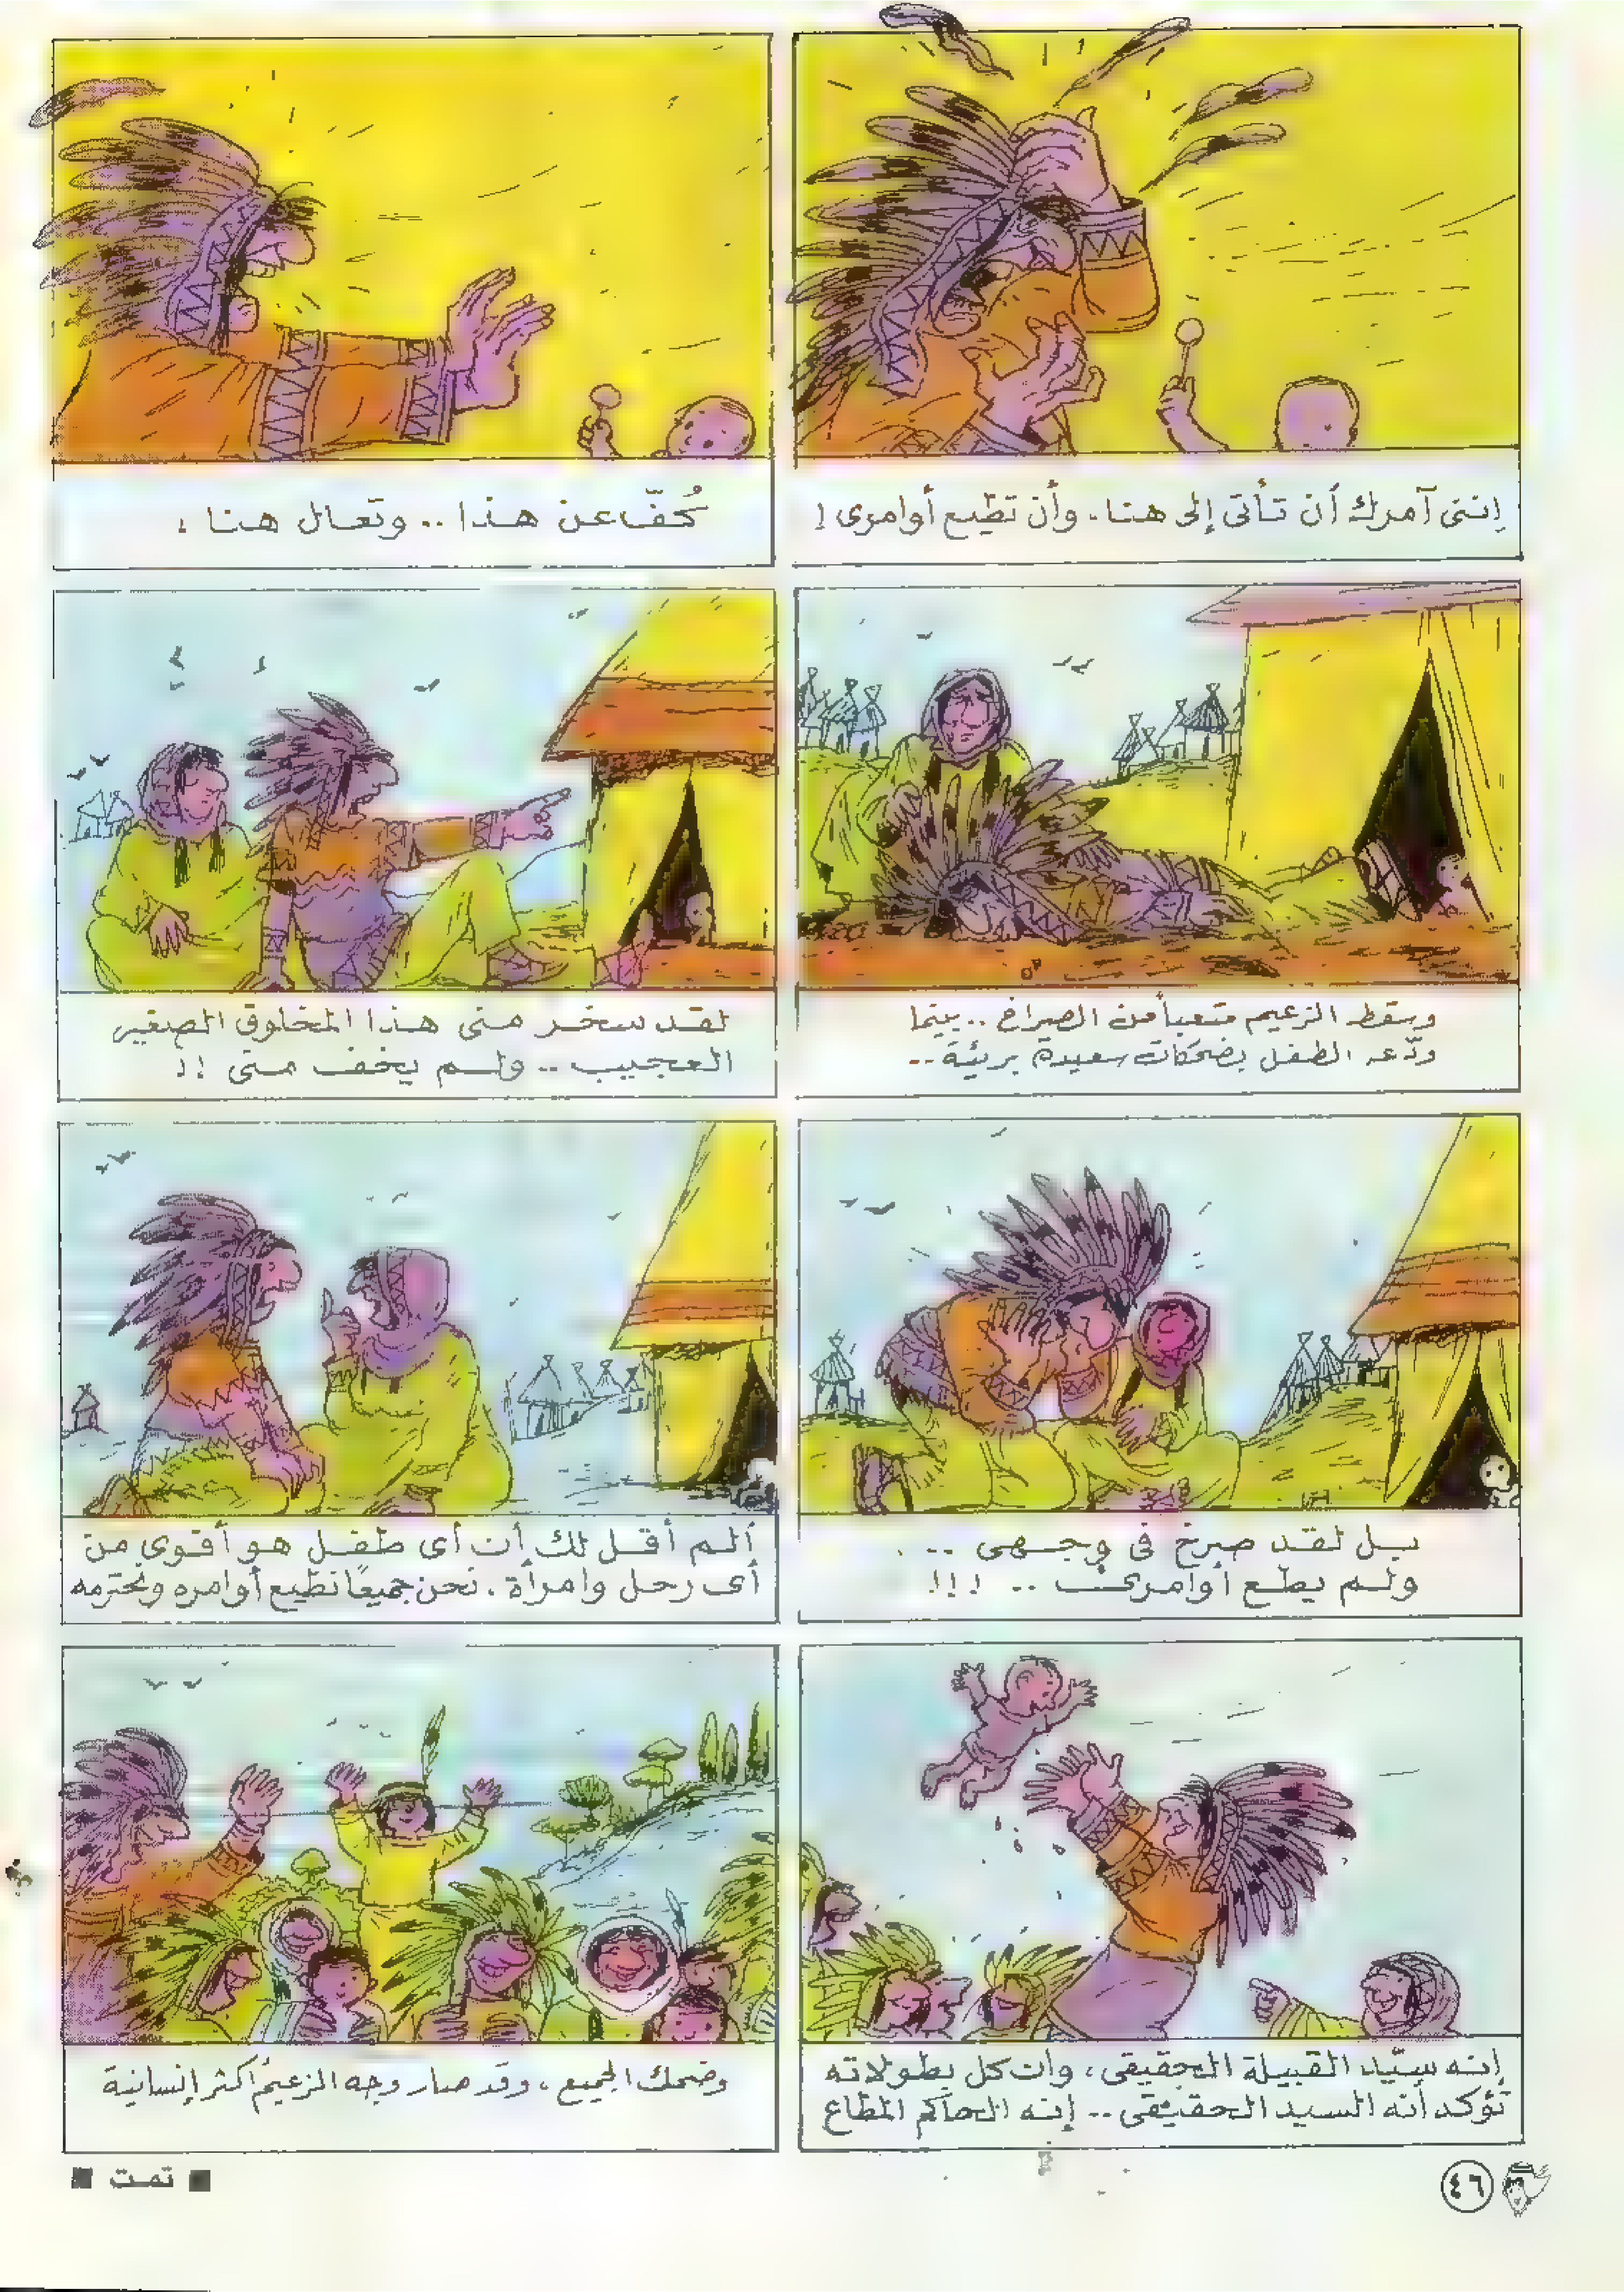 إننى آمرك أن تأتى إلى هنا. وأن تطيع أوامرى !
كُفّ عن هذا .. وتعال هنا !
وسقط الزعيم متعباً من الصراخ .. بينما
ودّعه الطفل بضحكات سعيدة بريئة ..
لقد سخر منى هذا المخلوق الصغير
العجيب .. ولم يخف منى !!
بل لقد صرخ فى وجهى ..
ولم يطع أوامرى .. !!!
ألم أقل لك أن أى طفل هو أقوى من
أى رجل وامرأة . نحن جميعًا نطيع أوامره ونحترمه
إنه سيّد القبيلة الحقيقى ، وان كل بطولاته
تؤكد أنه السيد الحقيقى .. إنه الحاكم المطاع
وضحك الجميع ، وقد صار وجه الزعيم أكثر إنسانية
■ تمت ■
٤٦